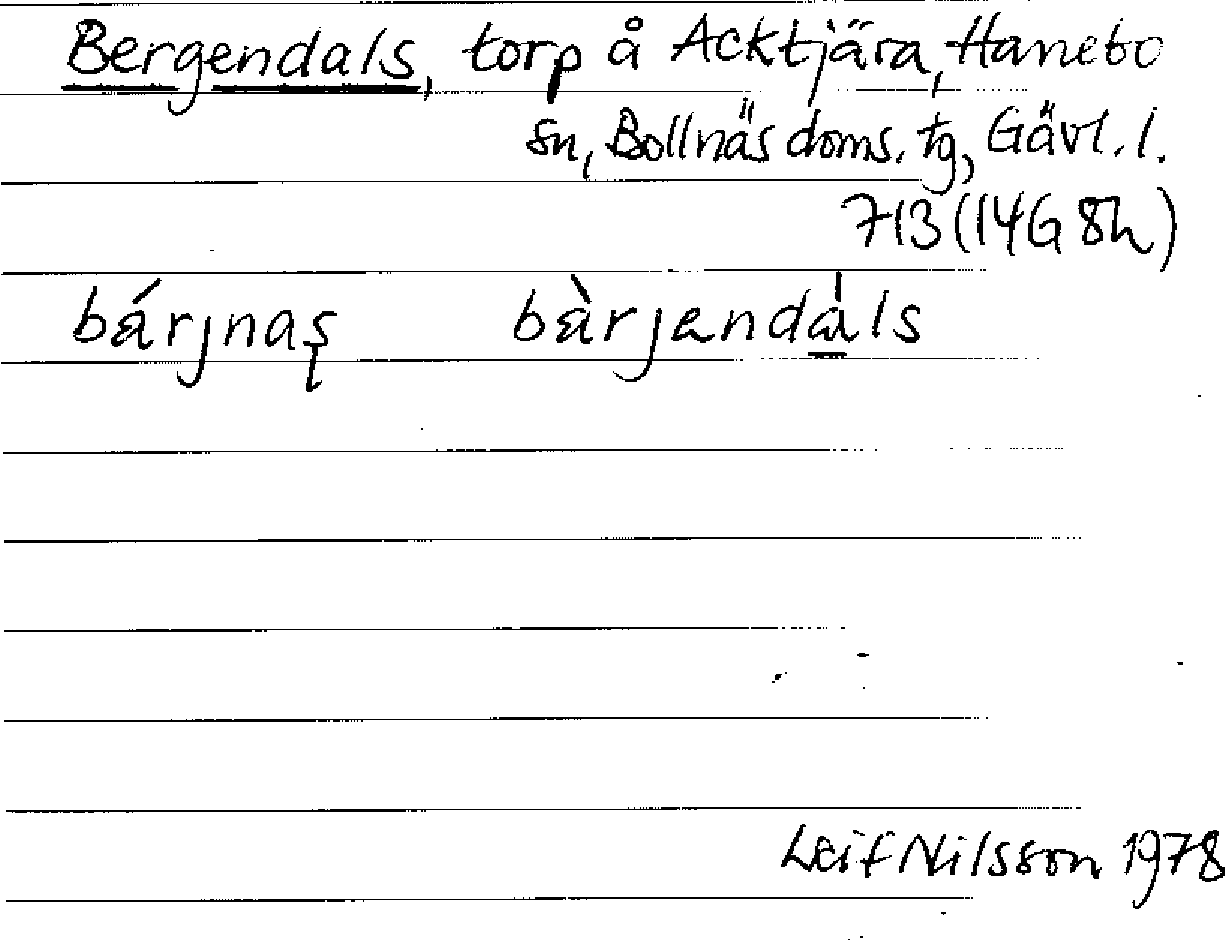 Bergendals, torp å Acktjära, Hanebo
sn, Bollnäs doms. tg, Gävl. l.
713 (14G 8h)
bárjnaş bàrjendàls
Leif Nilsson 1978